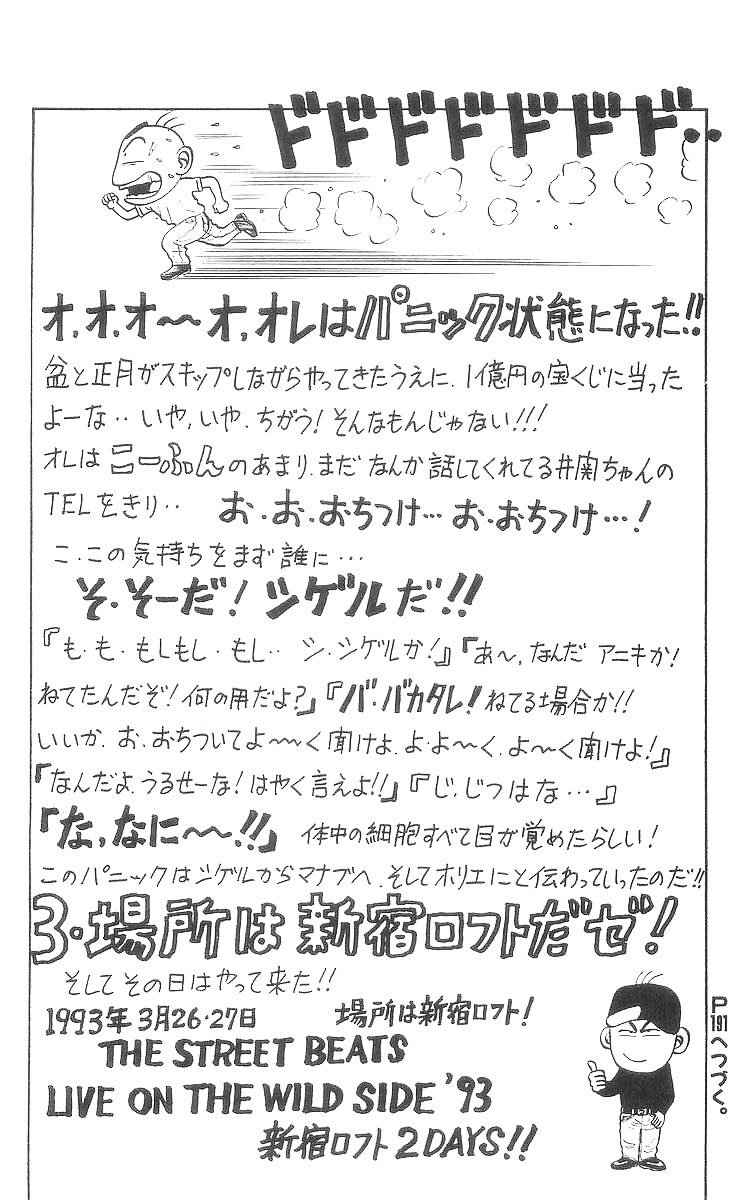 ドドドドドドド‥
オ,オ,オ〜〜オ,オレはパニック状態になった!!
盆と正月がスキップしながらやってきたうえに、1億円の宝くじに当った
よーな‥いや,いや、ちがう!そんなもんじゃない!!!
オレはこーふんのあまり、まだなんか話してくれてる井関ちゃんの
TELをきり‥ お・お・おちつけ…お・おちつけ…!
こ、この気持ちをまず誰に…
そ、そーだ!シゲルだ!!
『も・も・もしもし・もし‥ シ・シゲルか!』「あ〜,なんだ アニキか!
ねてたんだぞ!何の用だよ?」『バ・バカタレ!ねてる場合か!!
いいか、お、おちついてよ〜〜く聞けよ、よ・よ〜く、よ〜く聞けよ!』
「なんだよ、うるせーな!はやく言えよ!!」『じ,じつはな…』
「な,なに〜〜!!」 体中の細胞すべて目が覚めたらしい!
このパニックはシゲルからマナブへ、そしてホリエにと伝わっていったのだ!!
3・場所は新宿ロフトだゼ!
そしてその日はやって来た!!
1993年3月26・27日 場所は新宿ロフト!
THE STREET BEATS
LIVE ON THE WILD SIDE '93
新宿ロフト2DAYS!!
P191へつづく。